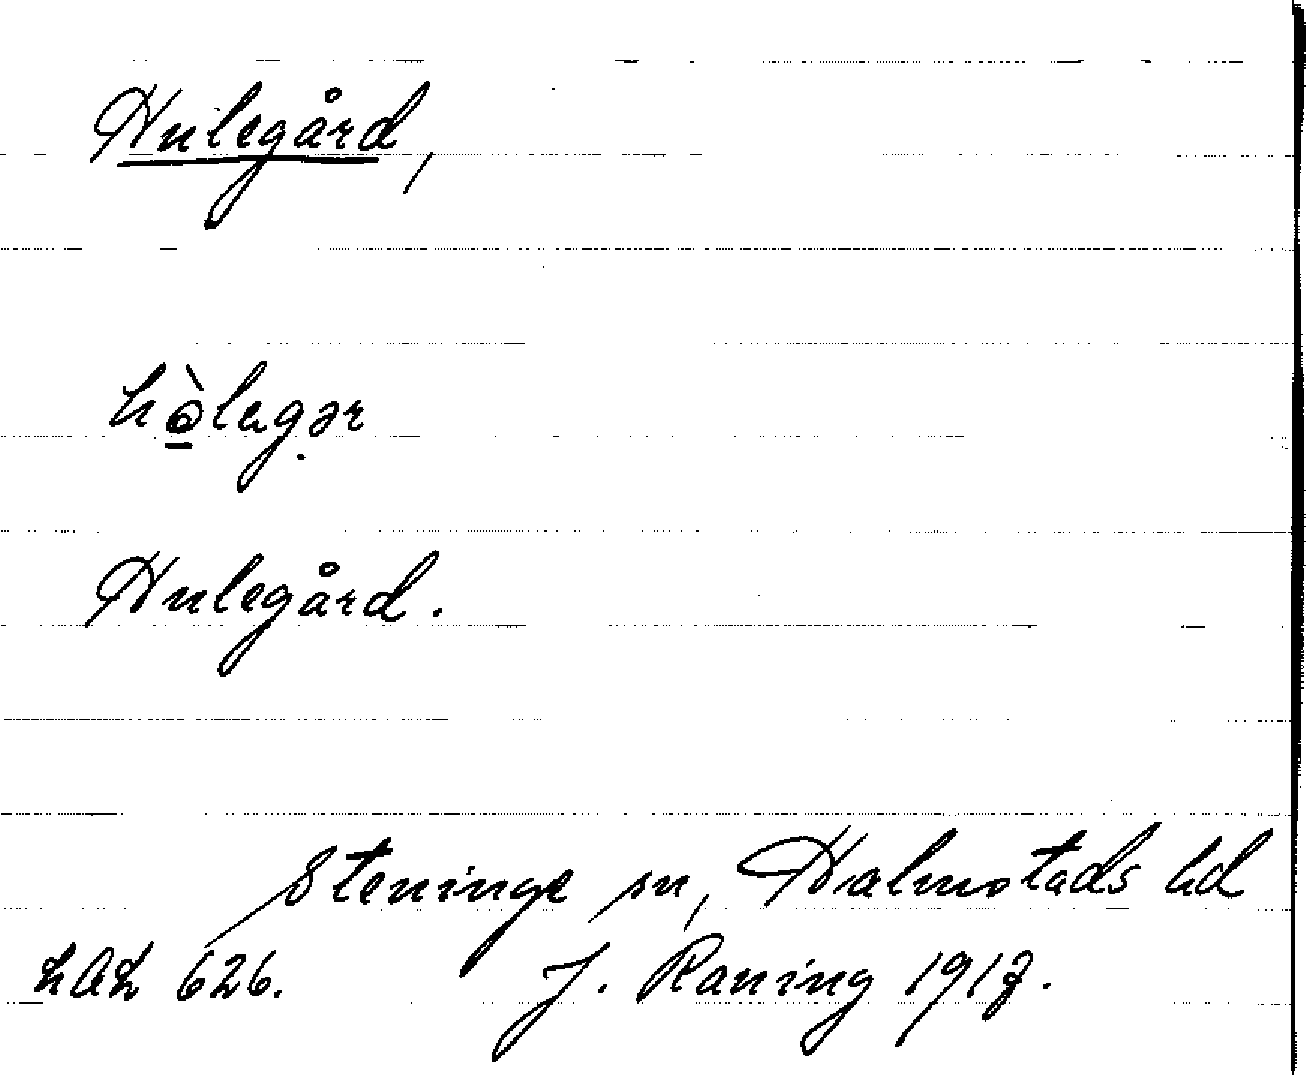 Hulegård,
hò̱legər
Hulegård.
Steninge sn, Halmstads hd
LAL 626. J. Raning 1917.